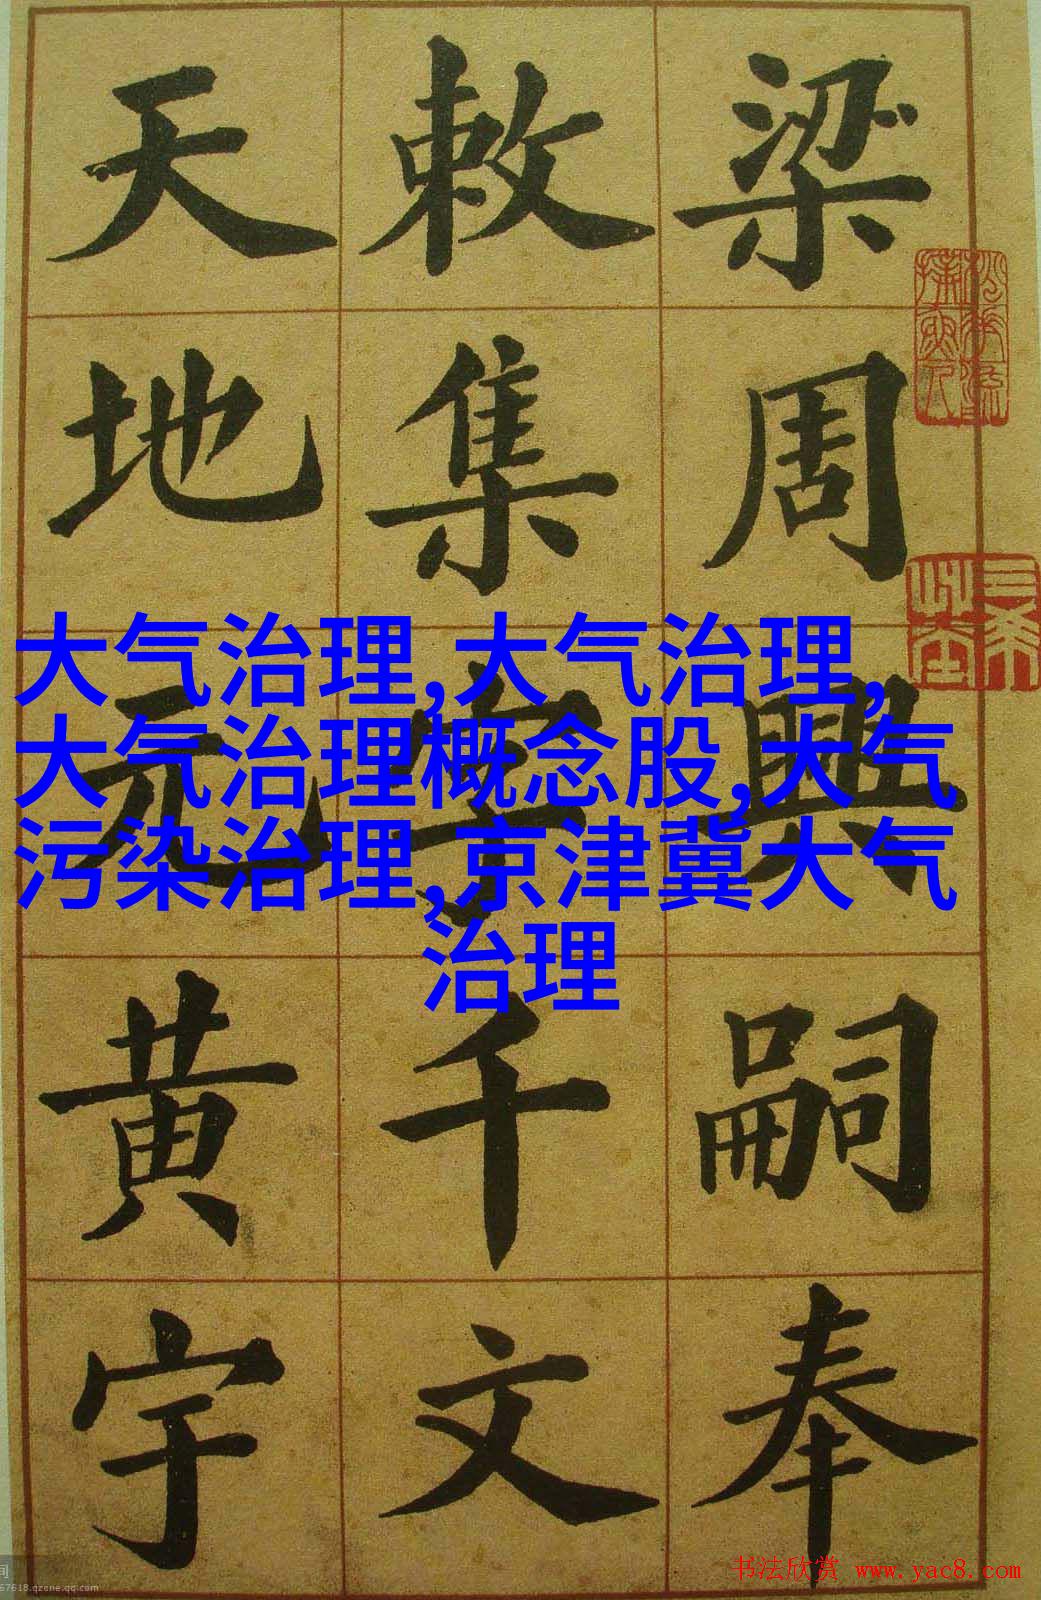 梁周興嗣奉
敕集字千文
天地元黄宇
大气治理,大气治理,
大气治理概念股,大气
污染治理,京津冀大气
治理
书法欣赏 www.yac8.com
67618.qzone.qq.com